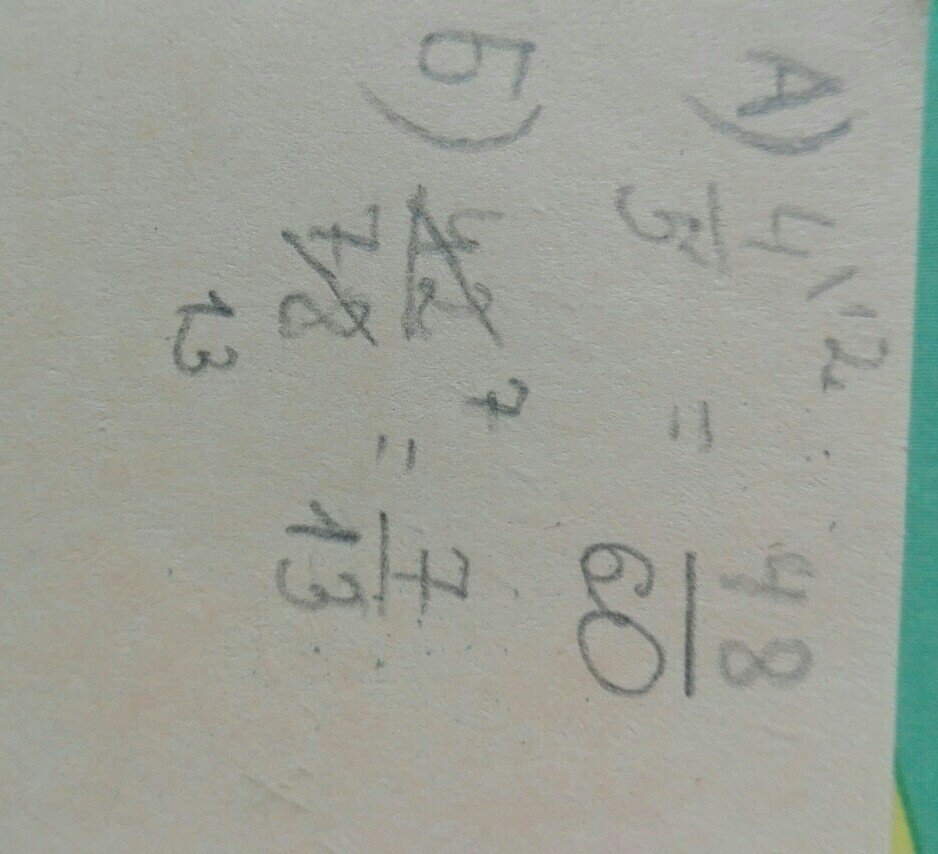 А) 4/5 \12 = 48/60
Б) 42/78 7 13 = 7/13